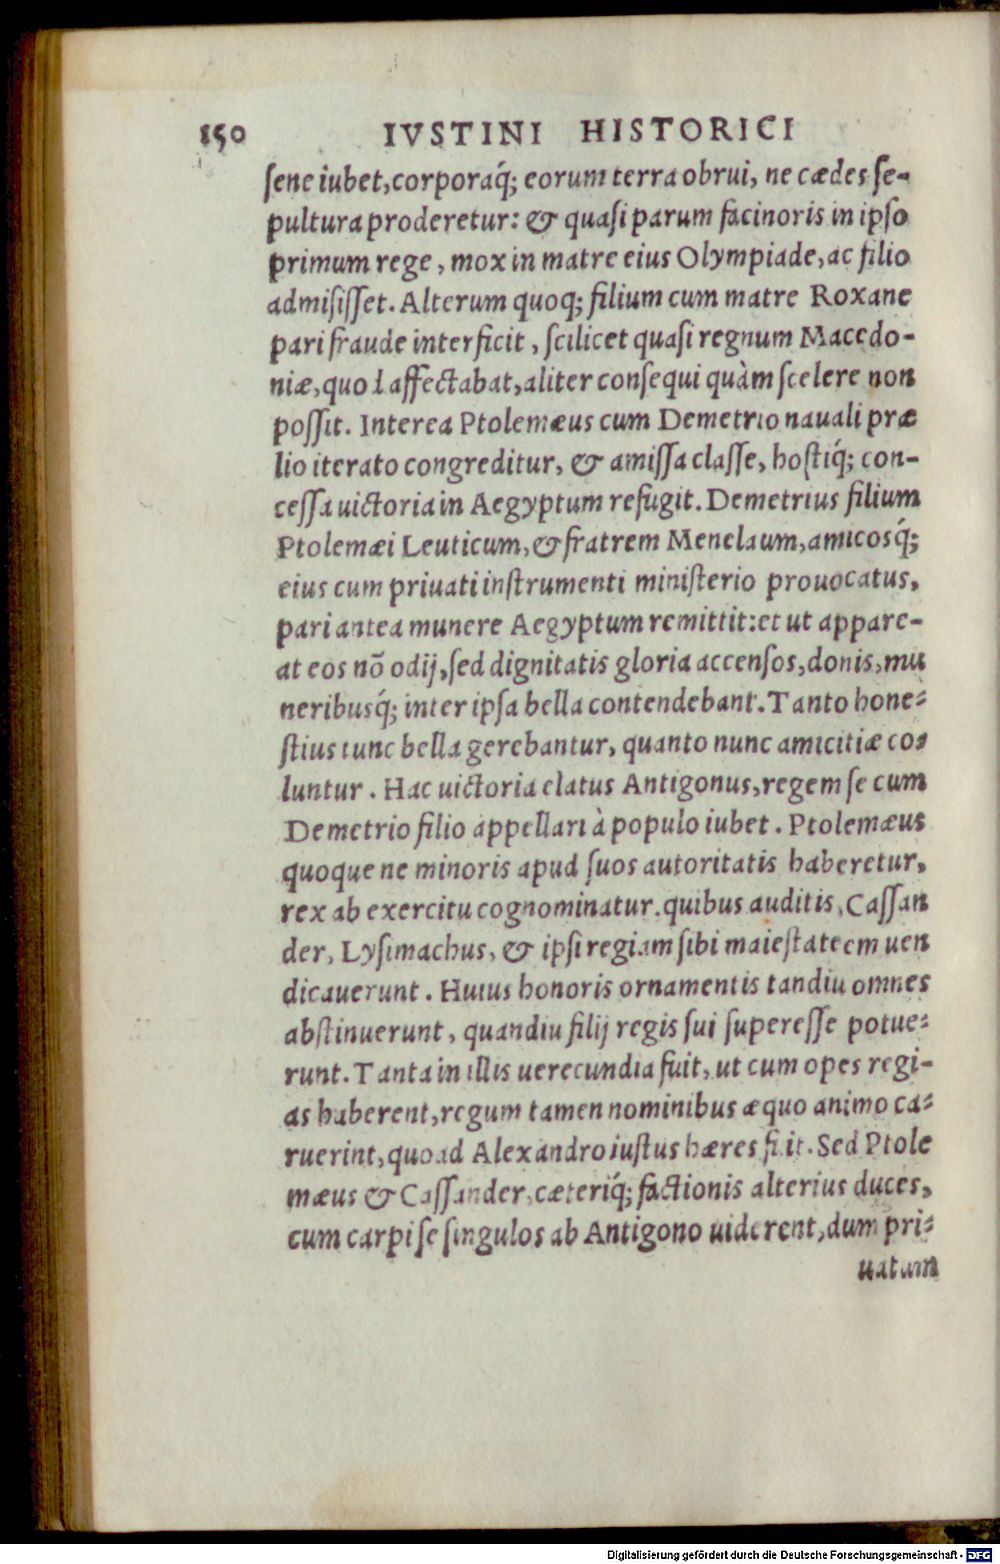 150 IVSTINI HISTORICI
sene iubet, corporaq́; eorum terra obrui, ne cædes se-
pultura proderetur: & quasi parum facinoris in ipso
primum rege, mox in matre eius Olympiade, ac filio
admisisset. Alterum quoq; filium cum matre Roxane
pari fraude interficit, scilicet quasi regnum Macedo-
niæ, quod affectabat, aliter consequi quàm scelere non
possit. Interea Ptolemæus cum Demetrio nauali præ
lio iterato congreditur, & amissa classe, hostiq́; con-
cessa uictoria in Aegyptum refugit. Demetrius filium
Ptolemæi Leuticum, & fratrem Menelaum, amicosq́;
eius cum priuati instrumenti ministerio prouocatus,
pari antea munere Aegyptum remittit: et ut appare-
at eos nō odij, sed dignitatis gloria accensos, donis, mu
neribusq́; inter ipsa bella contendebant. Tanto hone-
stius tunc bella gerebantur, quanto nunc amicitiæ co-
luntur. Hac uictoria elatus Antigonus, regem se cum
Demetrio filio appellari à populo iubet. Ptolemæus
quoque ne minoris apud suos autoritatis haberetur,
rex ab exercitu cognominatur. quibus auditis, Cassan
der, Lysimachus, & ipsi regiam sibi maiestateem uen
dicauerunt. Huius honoris ornamentis tandiu omnes
abstinuerunt, quandiu filij regis sui superesse potue-
runt. Tanta in illis uerecundia fuit, ut cum opes regi-
as haberent, regum tamen nominibus æquo animo ca-
ruerint, quoad Alexandro iustus hæres fuit. Sed Ptole
mæus & Cassander, cæteriq́; factionis alterius duces,
cum carpi se singulos ab Antigono uiderent, dum pri-
uatum
Digitalisierung gefördert durch die Deutsche Forschungsgemeinschaft - DFG